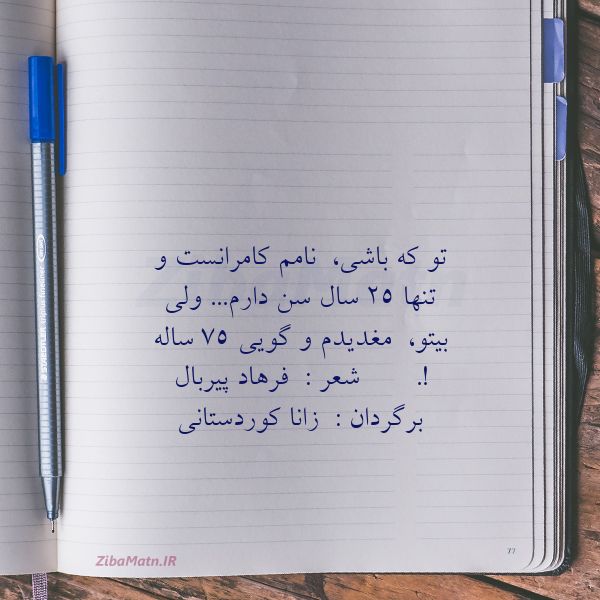 تو که باشی، نامم کامرانست و
تنها ٢٥ سال سن دارم... ولی
بیتو، مغدیدم و گویی ٧٥ ساله
!. شعر : فرهاد پیربال
برگردان : زانا کوردستانی
ZibaMatn.IR
77